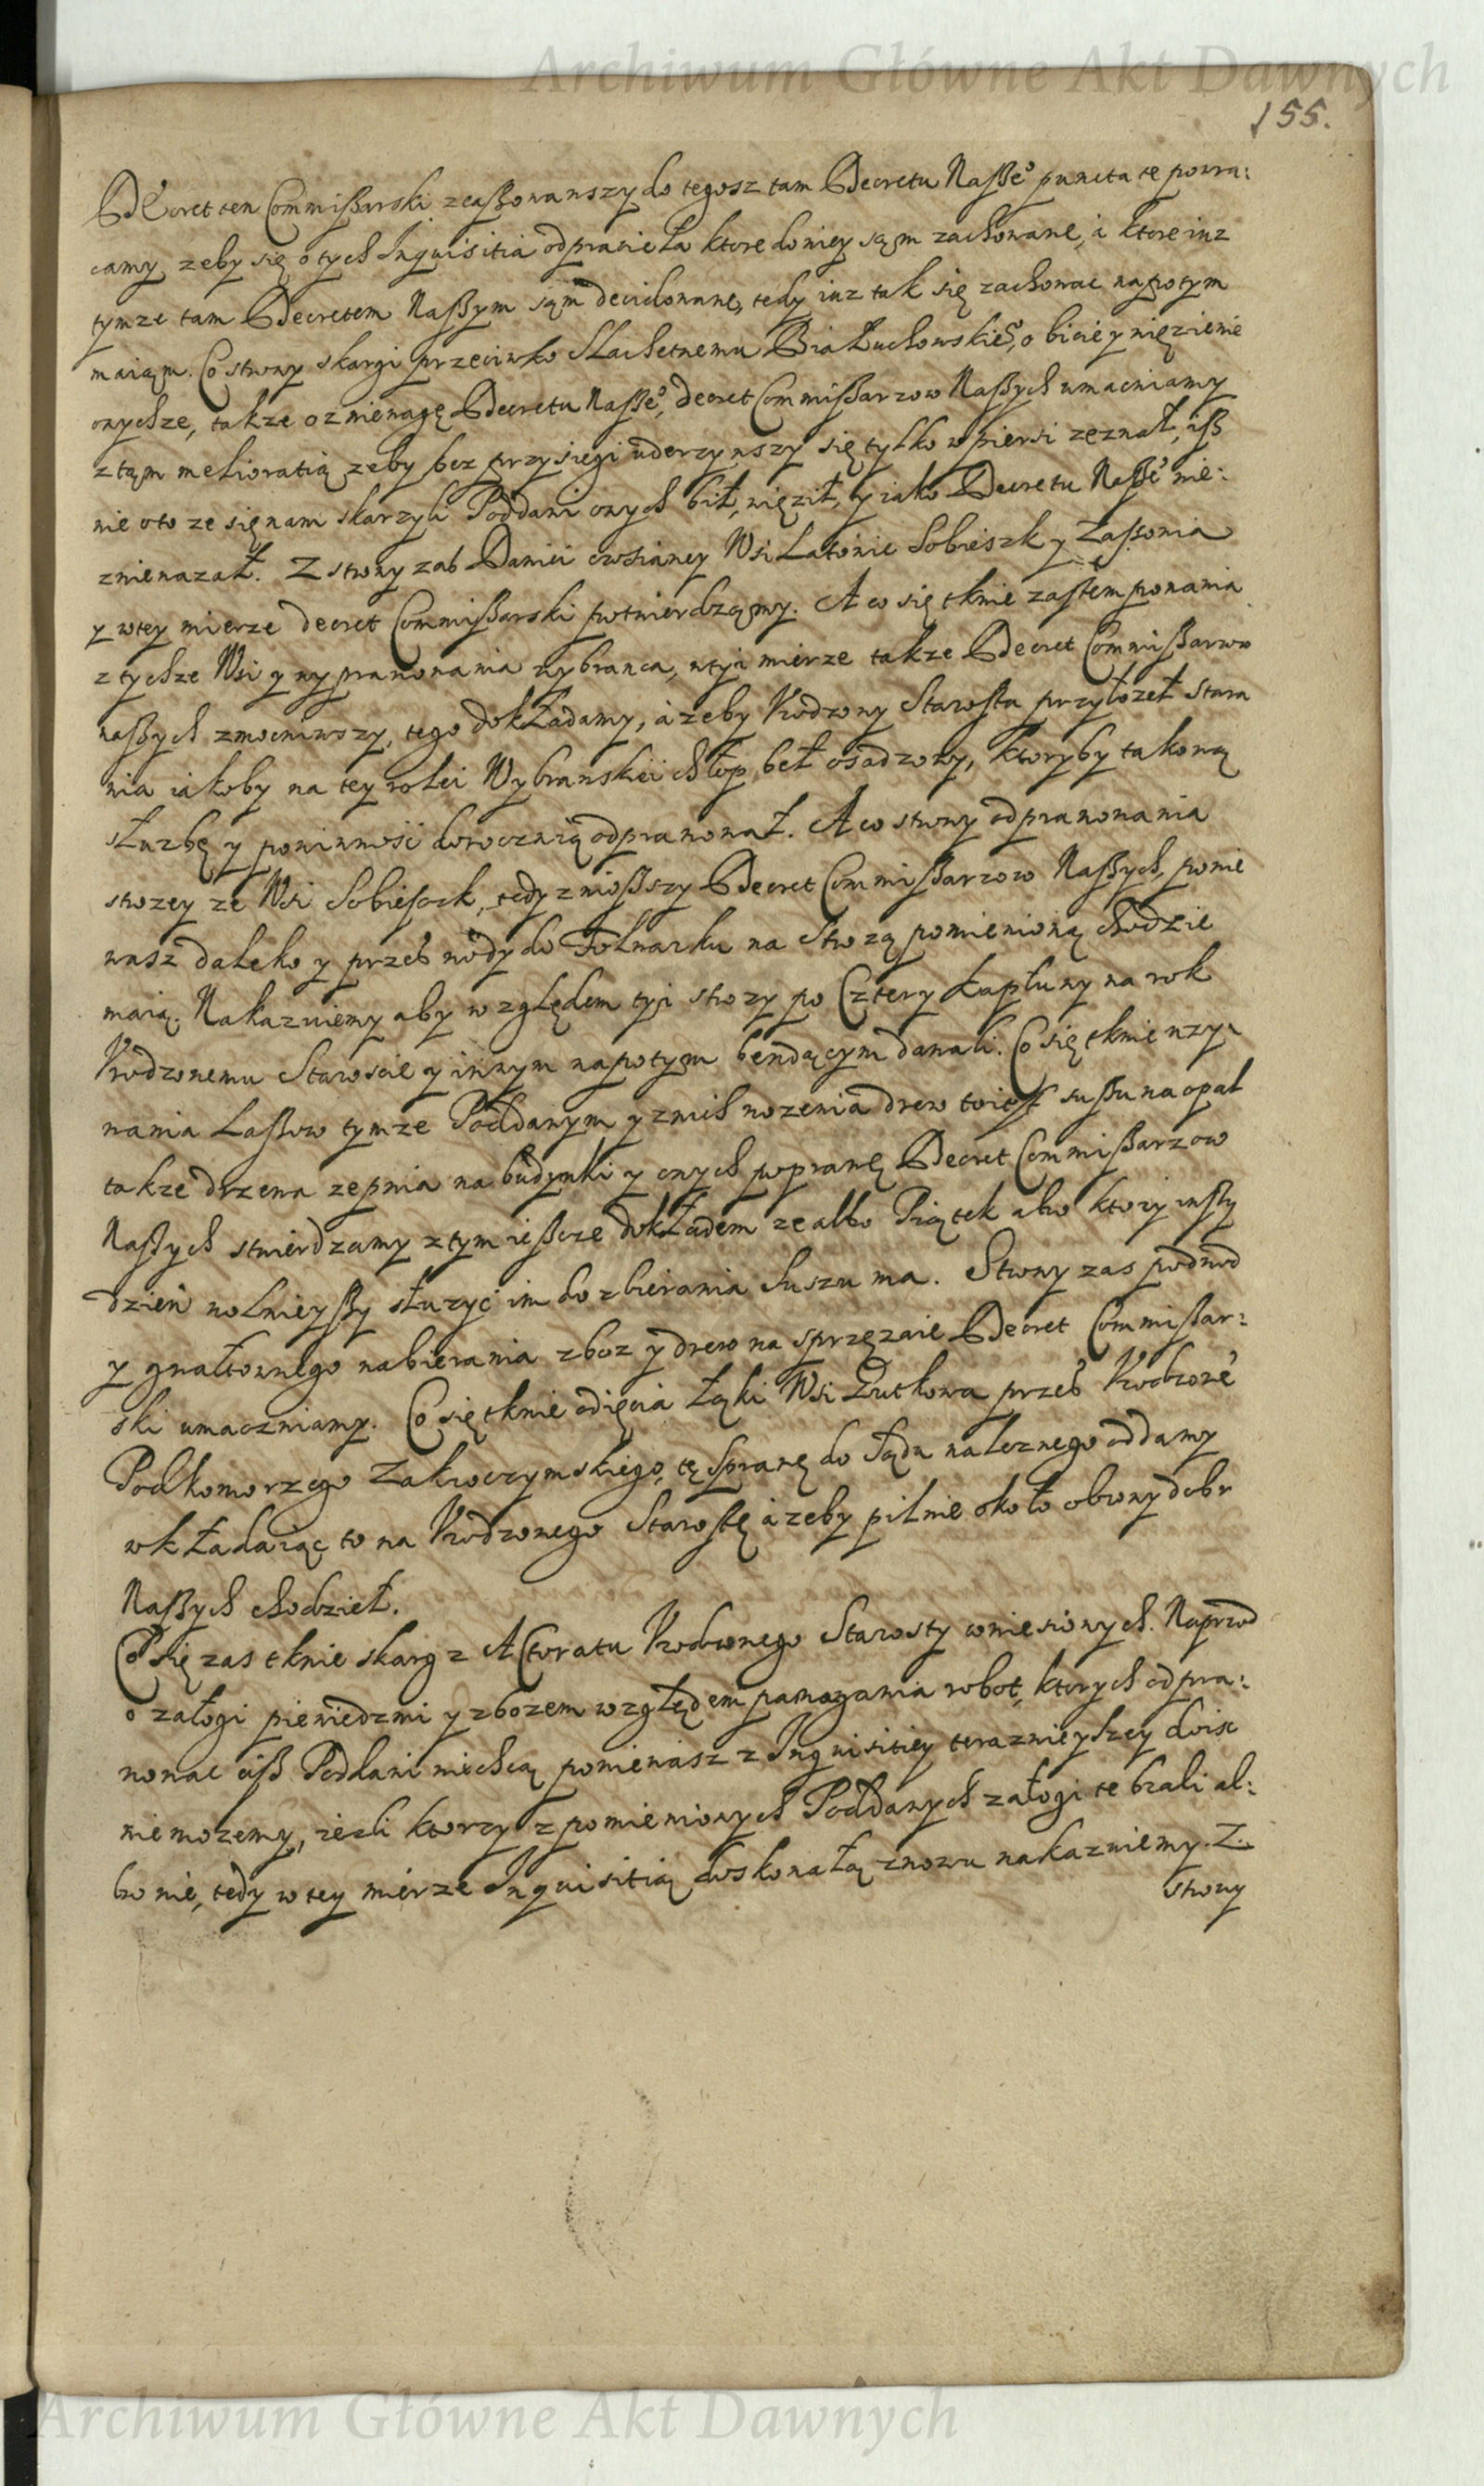 Archiwum Główne Akt Dawnych
155.
Decret ten Commißarski zcaßowawszy do tegosz tam Decretu Naße° puncta te powra:
camy, zeby się o tych Inquisitia odprawieła ktore do niey sąm zachowane, a ktore iuz
tymze tam Decretem Naßym sąm decidowane, tedy iuz tak się zachowac napotym
maiąm. Co strony skargi przeciwko Slachetnemu Białuchowskie°, o bicie y więzienie
onychze, takze o zniewagę Decretu Naße°, decret Commißarzow Naßych umacniamy
z tąm melioratią zeby bez przysięgi uderzywszy się tylko w piersi zeznał, iß
nie oto ze się nam skarzyli Poddani onych bił, więził, y iako Decretu Naße° nie:
zniewazał. Z strony zab Danici owsianey Wsi Latonie Sobieszk y Zaßonia
y wtey mierze decret Commißarski potwierdząmy. A co się tknie zastempowania
z tychze Wsi y wyprawowania wybranca, wtyi mierze takze Decret Commißarzow
naßych zmocniwszy, tego dokładamy, azeby Urodzony Starosta przyłozeł stara
nia iakoby na tey roley Wybranskiei chłop beł osadzony, ktoryby takową
słuzbę y powinność doroczną odprawował. A co strony odprawowania
strozey ze Wsi Sobiesczk, tedy znioßszy Decret Commißarzow Naßych, ponie
wasz daleko y przes wody do Folwarku na Strozą pomienioną chodzic
maią. Nakazuiemy aby względem tyi strozy po Cztery kapłuny na rok
Urodzonemu Staroscie y innym napotym bendącym dawali. Co się tknie uzy:
wania Laßow tymze Poddanym y zwich wozenia drew to iest sußu na opał
takze drzewa ze pnia na budynki y onych poprawę Decret Commißarzow
Naßych stwierdzamy z tym ießcze dokładem ze albo Piątek abo ktory inßy
dzien wolnieyßy słuzyć im do zbierania suszu ma. Strony zas podwod
y gwałtownego nabierania zboz y drew na sprzęzaie Decret Commißar:
ski umaczniamy. Co się tknie odięcia łąki Wsi Dutkowa przes Urodzone°
Podkomorzego Zakroczymskiego, tę sprawę do sądu naleznego oddamy
wkładaiąc to na Urodzonego Starostę azeby pilnie około obrony dobr
Naßych chodzieł.
Co się zas tknie skarg z Actoratu Urodzonego Starosty wniesionych. Naprzod
o załogi pieniedzmi y zbozem względem pamagania robot, ktorych odpra:
wowac ciß Poddani niechcą poniewasz z Inquisitiey teraznieyszey doisc
niemozemy, iezli ktorzy z pomienionych Poddanych załogi te brali al:
bo nie, tedy w tey mierze Inquisitią doskonałą znowu nakazuiemy. Z
strony
Archiwum Główne Akt Dawnych